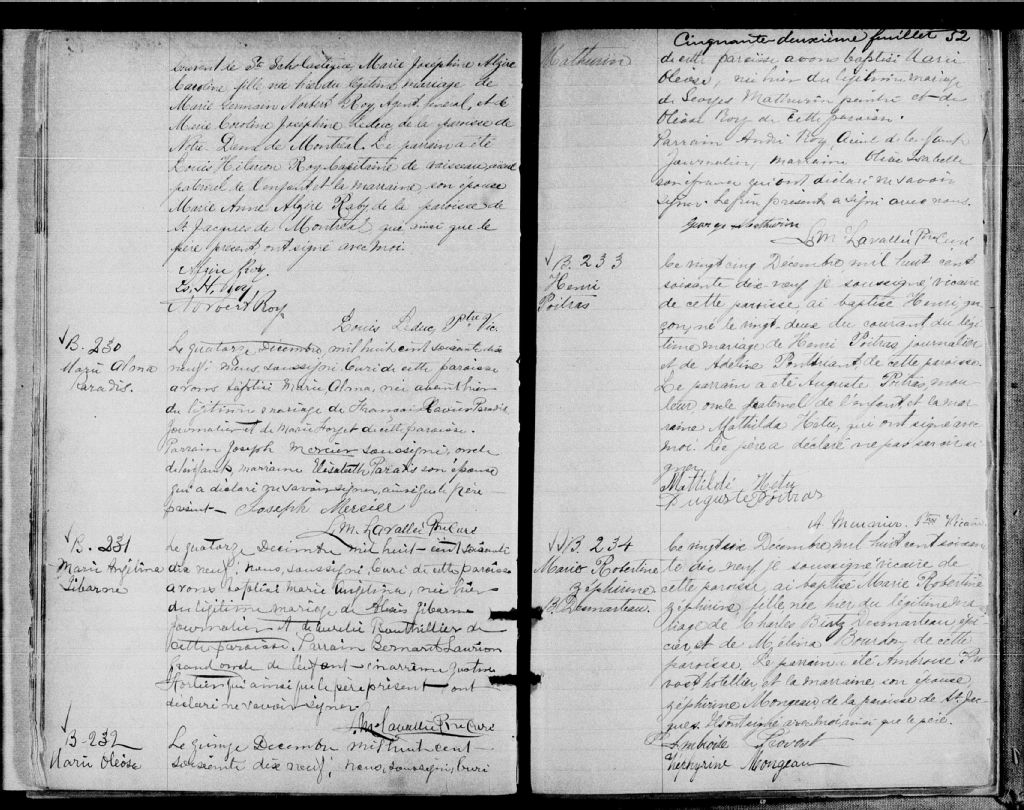 couvent de Ste Scholastique Marie Josephine Algire
Caroline fille née hier du légitime mariage de
Marie Germain Norbert Roy, Agent général, et de
Marie Caroline Josephine Leduc, de la paroisse de
Notre Dame de Montreal. Le parrain a été
Louis Hilarion Roy, Capitaine de vaisseau, aieul
paternel de l'enfant et la marraine son epouse
Marie Anne Algire Raby de la paroisse de
St Jacques de Montréal qui ainsi que le
père present ont signé avec moi.
Algire Roy
Ls. H. Roy
Norbert Roy
Louis Leduc, Ptre Vic.
B. 230
Marie Alma
Paradis.
Le quatorze Decembre mil huit cent soixante dix
neuf, Nous soussigné Curé de cette paroisse
avons baptisé Marie Alma, née
du légitime mariage de Xavier Paradis
journalier et de Marie Forget de cette paroisse.
Parrain Joseph Mercier soussigné, oncle
de l'enfant, marraine Elisabeth Paradis son épouse
qui a déclaré ne savoir signer, ainsi que le père
présent — Joseph Mercier
L. M. Lavallée Ptre Curé
B. 231
Marie Anjelina
Le quatorze Decembre mil huit-cent soixante
dix neuf, nous, soussigné, Curé de cette paroisse
avons baptisé Marie Anjelina, née hier
du légitime mariage de
journalier et de
cette paroisse. Parrain Bernard Laurion
Grand oncle de l'enfant — marraine
qui ainsi que le père présent — ont
déclaré ne savoir signer.
L. M. Lavallée Ptre Curé
B-232
Marie Oléose
Le quinze Decembre mil huit cent-
soixante dix neuf, nous, soussigné, Curé
Cinquante deuxième feuillet 52
Mathurin
de cette paroisse avons baptisé Marie
Oléose, née hier du légitime mariage
de Georges Mathurin peintre et de
Oléose Roy de cette paroisse.
Parrain André Roy, aieul de l'enfant
journalier, marraine Olive Labelle
qui ont déclaré ne savoir
signer. Le père présent a signé avec nous.
George Mathurin
L. M. Lavallée Ptre Curé
B. 233
Henri
Poitras
Le vingt cinq Décembre mil huit cent
soixante dix neuf je soussigné, vicaire
de cette paroisse, ai baptisé Henri, gar-
çon, né le vingt-deux du courant du légi-
time mariage de Henri Poitras journalier
et de Adelina de cette paroisse.
Le parrain a été Auguste Poitras mou-
leur, oncle paternel de l'enfant, et la mar-
raine Mathilda Hetu, qui ont signé avec
moi. Le père a déclaré ne pas savoir si-
gner
Mathilde Hetu
Auguste Poitras
A. Meunier. Ptre Vicaire
B. 234
Marie Robertine
Zéphirine
B. Desmarteau.
Le vingt six Décembre mil huit cent soixan-
te dix neuf je soussigné vicaire de
cette paroisse, ai baptisé Marie Robertine
Zéphirine, fille née hier du légitime ma-
riage de Charles Desmarteau, épi-
cier et de Mzélina Bourdon, de cette
paroisse. Le parrain a été Ambroise Pro-
vost hotellier, et la marraine son epouse,
Zéphirine Mongeau de la paroisse de St. Jac-
ques. Ils ont signé avec moi ainsi que le père.
Ambroise Provost
Zéphyrine Mongeau